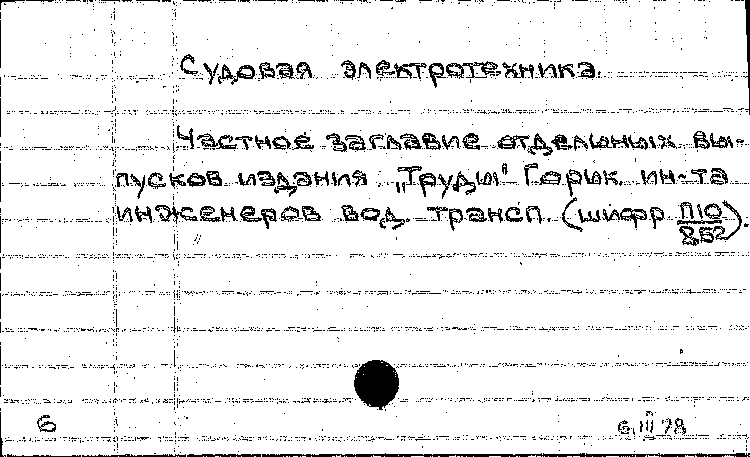 Судовая электротехника.
Частное заглавие отдельных вы-
пусков издания „Труды" Горьк. ин-та
инженеров вод. трансп. (шифр П10/852).
6
6.III 78